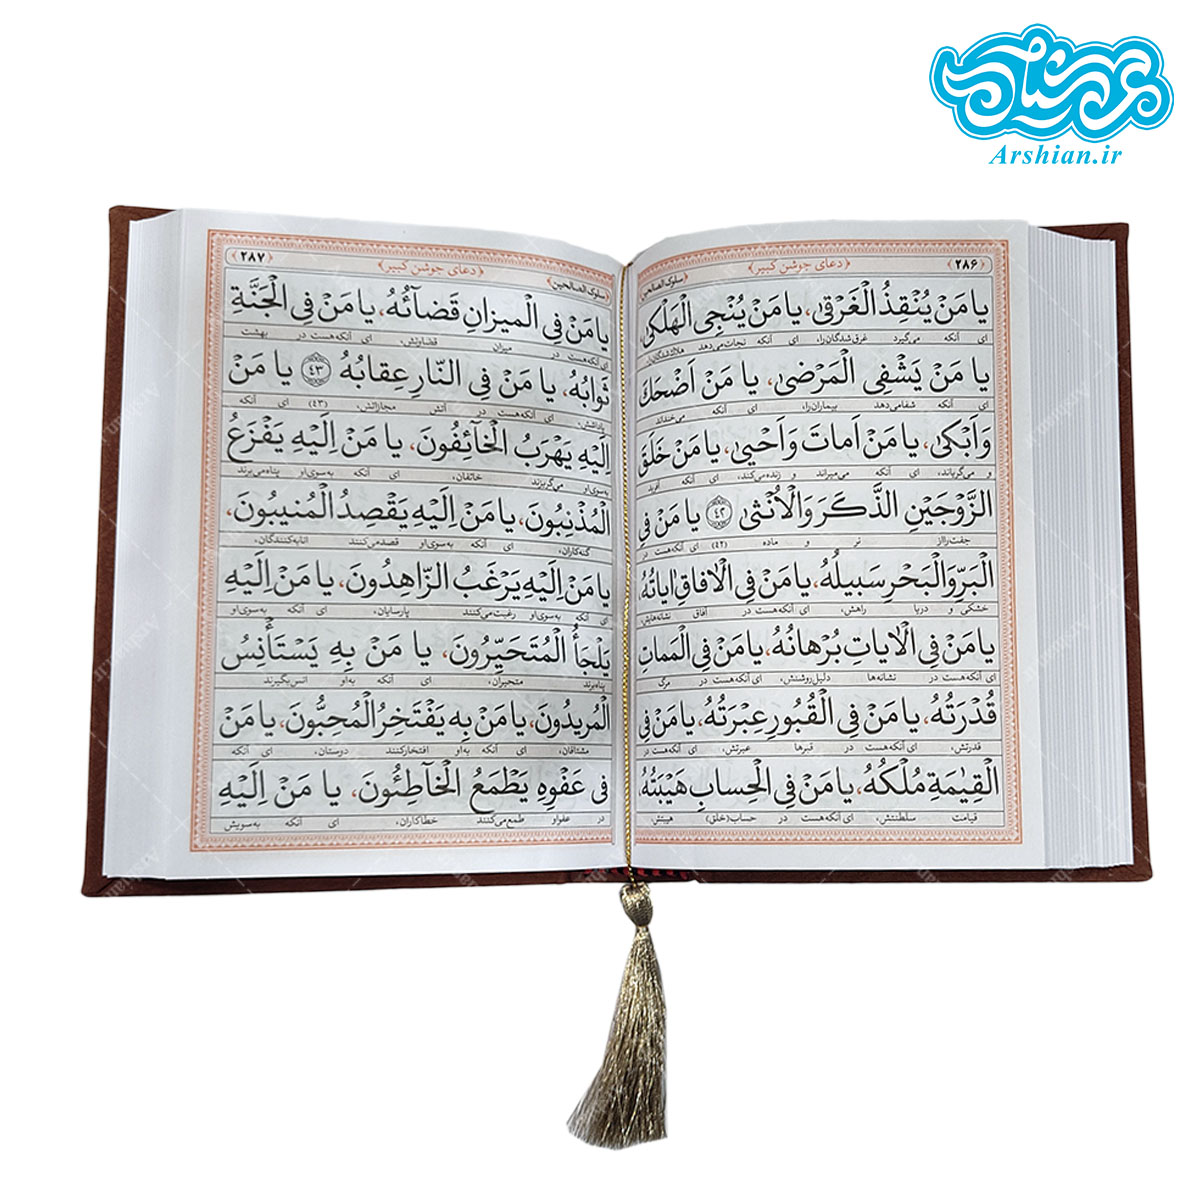 عرشیان
Arshian.ir
﴿۲۸۶﴾
﴿دعای جوشن کبیر﴾
﴿سلوک الصالحین﴾
یا مَنْ یُنْقِذُ الْغَرْقٰی، یا مَنْ یُنْجِی الْهَلْکٰی،
ای آنکه می‌گیرد غرق‌شدگان‌را، ای آنکه نجات‌می‌دهد هلاک‌شدگان‌را،
یا مَنْ یَشْفِی الْمَرْضٰی، یا مَنْ اَضْحَكَ
ای آنکه شفامی‌دهد بیماران‌را، ای آنکه می‌خنداند
وَاَبْکٰی، یا مَنْ اَماتَ وَاَحْییٰ، یا مَنْ خَلَقَ
و می‌گریاند، ای آنکه می‌میراند و زنده‌می‌کند، ای آنکه آفرید
الزَّوْجَیْنِ الذَّکَرَ وَالْاُنْثیٰ ﴿۴۲﴾ یا مَنْ فِی
جفت‌رااز نر و ماده (۴۲) ای آنکه‌هست در
الْبَرِّ وَالْبَحْرِ سَبیلُهُ، یا مَنْ فِی الْاٰفاقِ اٰیاتُهُ،
خشکی و دریا راهش، ای آنکه‌هست در آفاق نشانه‌هایش،
یا مَنْ فِی الْاٰیاتِ بُرْهانُهُ، یا مَنْ فِی الْمَماتِ
ای آنکه‌هست در نشانه‌ها دلیل‌روشنش، ای آنکه‌هست در مرگ
قُدْرَتُهُ، یا مَنْ فِی الْقُبُورِ عِبْرَتُهُ، یا مَنْ فِی
قدرتش، ای آنکه‌هست در قبرها عبرتش، ای آنکه‌هست در
الْقِیٰمَةِ مُلْکُهُ، یا مَنْ فِی الْحِسابِ هَیْبَتُهُ،
قیامت سلطنتش، ای آنکه‌هست در حساب(خلق) هیبتش،
﴿سلوک الصالحین﴾
﴿دعای جوشن کبیر﴾
﴿۲۸۷﴾
یا مَنْ فِی الْمیزانِ قَضآئُهُ، یا مَنْ فِی الْجَنَّةِ
ای آنکه‌هست در میزان قضاوتش، ای آنکه‌هست در بهشت
ثَوابُهُ، یا مَنْ فِی النّارِ عِقابُهُ ﴿۴۳﴾ یا مَنْ
پاداشش، ای آنکه‌هست در آتش مجازاتش، (۴۳) ای آنکه
اِلَیْهِ یَهْرَبُ الْخآئِفُونَ، یا مَنْ اِلَیْهِ یَفْزَعُ
به‌سوی‌او می‌گریزند خائفان، ای آنکه به‌سوی‌او پناه‌می‌برند
الْمُذْنِبُونَ، یا مَنْ اِلَیْهِ یَقْصِدُ الْمُنیبُونَ،
گنه‌کاران، ای آنکه به‌سوی‌او قصدمی‌کنند انابه‌کنندگان،
یا مَنْ اِلَیْهِ یَرْغَبُ الزّاهِدُونَ، یا مَنْ اِلَیْهِ
ای آنکه به‌سوی‌او رغبت‌می‌کنند پارسایان، ای آنکه به‌سوی‌او
یَلْجَأُ الْمُتَحَیِّرُونَ، یا مَنْ بِهِ یَسْتَأْنِسُ
پناه‌برند متحیران، ای آنکه به‌او انس‌بگیرند
الْمُریدُونَ، یا مَنْ بِهِ یَفْتَخِرُ الْمُحِبُّونَ، یا مَنْ
مشتاقان، ای آنکه به‌او افتخارکنند دوستان، ای آنکه
فی عَفْوِهِ یَطْمَعُ الْخاطِئُونَ، یا مَنْ اِلَیْهِ
در عفواو طمع‌می‌کنند خطاکاران، ای آنکه به‌سویش